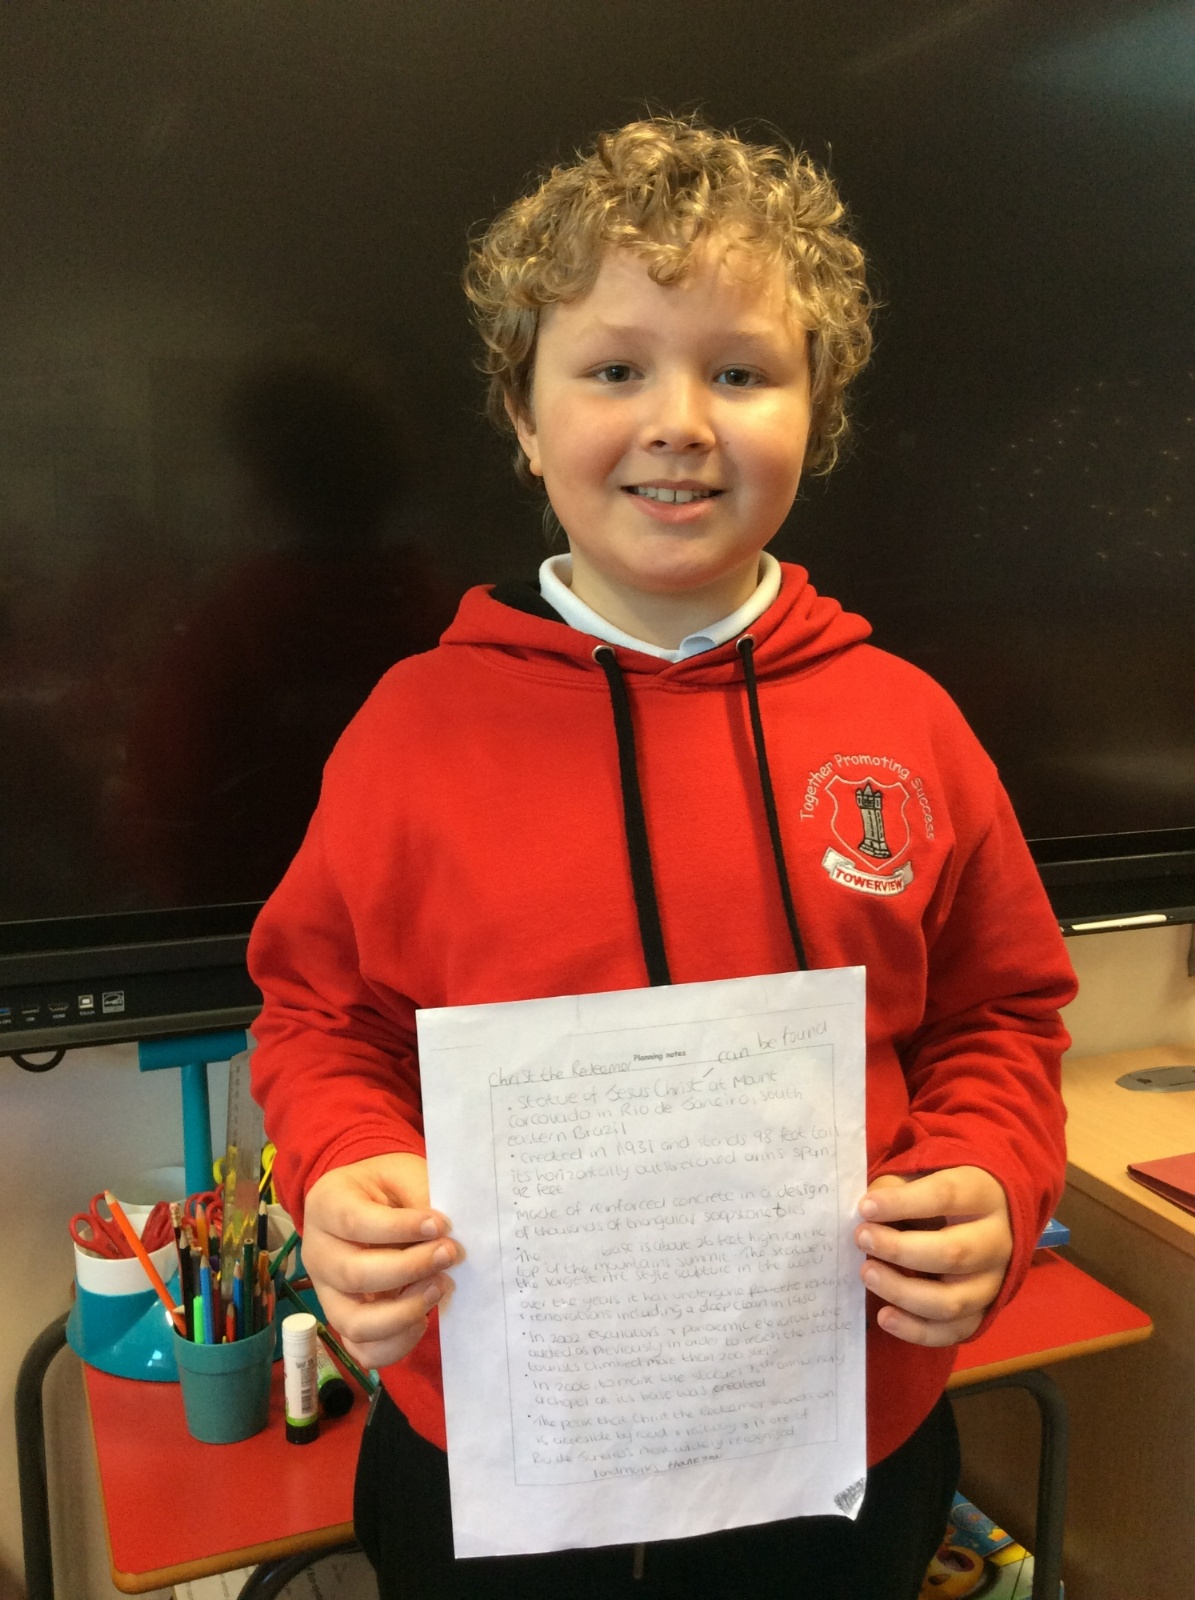 Together Promoting Success
TOWERVIEW
Planning notes
Christ the Redeemer can be found
• Statue of Jesus Christ at Mount
Corcovado in Rio de Janeiro, south
eastern Brazil
• Created in 1931 and stands 98 feet tall
its horizontally outstretched arms span
92 feet
• Made of reinforced concrete in a design
of thousands of triangular soapstone tiles
• The base is about 26 feet high, on the
top of the mountains summit. The statue is
the largest style sculpture in the world
• over the years it has undergone
renovations including a deep clean in
• In 2002 escalators + elevators were
added as previously in order to reach the statue
tourists climbed more than 200 steps
• In 2006, to mark the statues 75th anniversary
a chapel at its base was created
• The peak that Christ the Redeemer stands on
is accessible by road + railway + is one of
Rio de Janeiro's most widely recognised
landmarks thank you